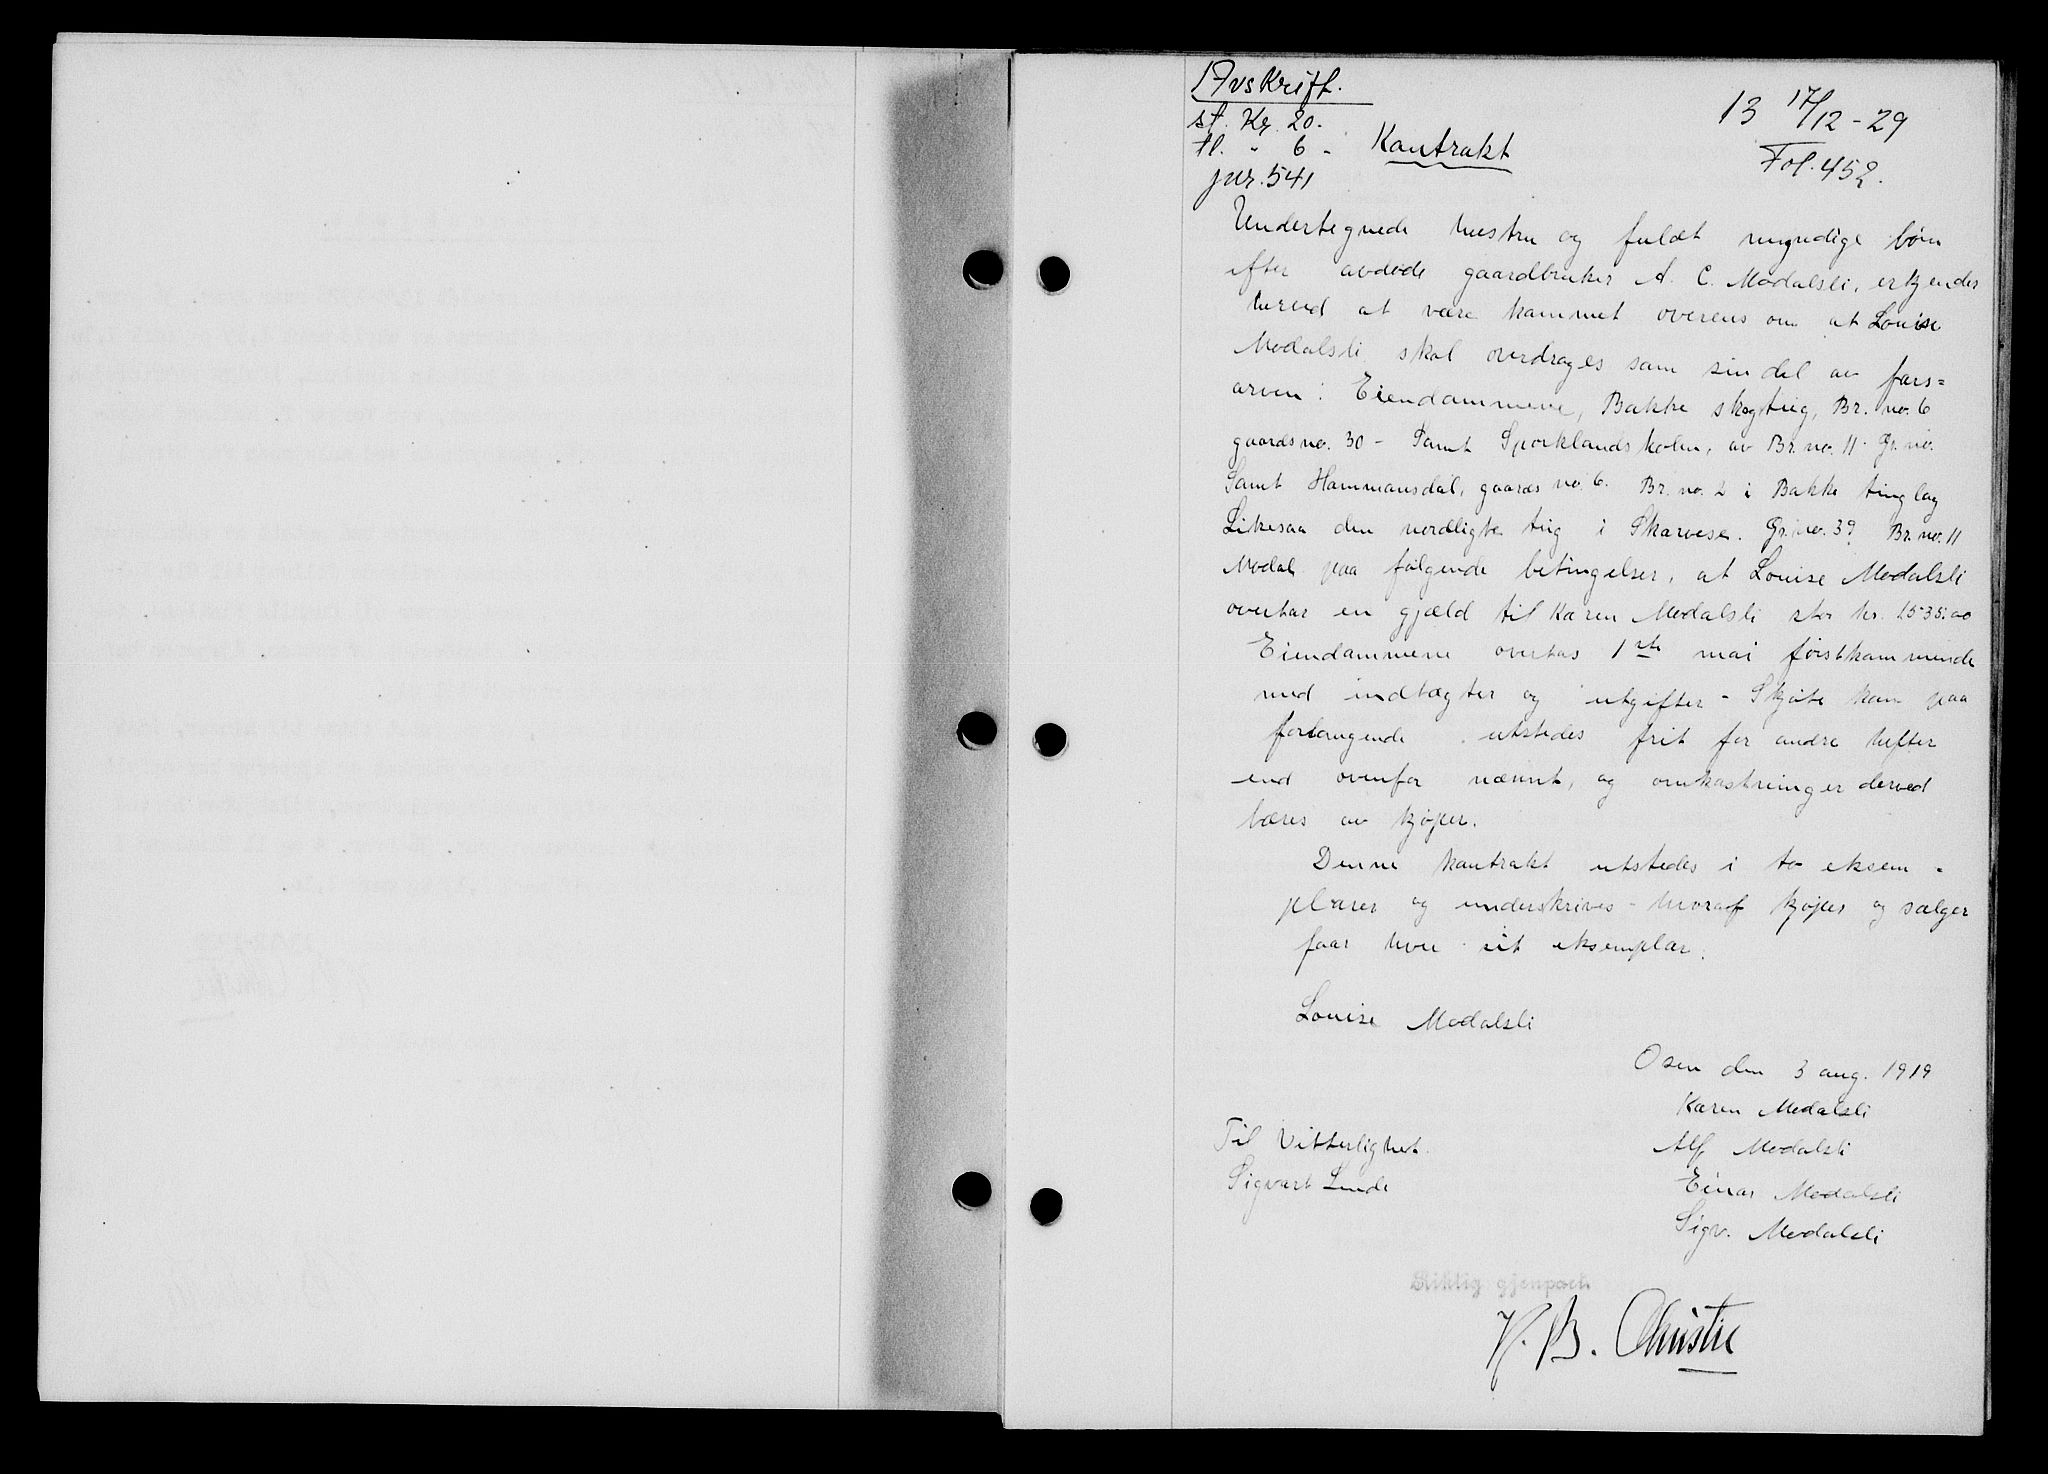 Avskrift.
13 17/12-29
st. Kr. 20.
Fol. 452.
tl. " 6 -
Kontrakt
jnr. 541
Undertegnede hustru og fuldt myndige børn
efter avdøde gaardbruker A. C. Modalsli, erkjender
herved at være kommet overens om at Louise
Modalsli skal overdrages som sin del av fars=
arven: Eiendommene, Bakke skogteig, Br. no. 6
gaards no. 30 - Samt Sporklandskolen, av Br. no. 11 Gr. no.
Samt Hammansdal, gaards no. 6. Br. no. 2 i Bakke tinglag
Likesaa den nordligste teig i Skarvese. Gr. no. 39 Br. no. 11
Modal paa følgende betingelser, at Louise Modalsli
overtar en gjæld til Karen Modalsli stor kr. 1535.00
Eiendommene overtas 1ste mai førstkommende
med indtægter og utgifter - Skjøte kan paa
forlangende utstedes frit for andre hefter
end ovenfor nævnt, og omkostninger derved
bæres av kjøper.
Denne kontrakt utstedes i to eksem -
plarer og underskrives - hvoraf kjøper og sælger
faar hver sit eksemplar.
Louise Modalsli
Osen den 3 aug. 1919
Karen Modalsli
Til Vitterlighet.
Alf Modalsli
Sigvart Lende
Einar Modalsli
Sigv. Modalsli
Riktig gjenpart
H. B. Christie